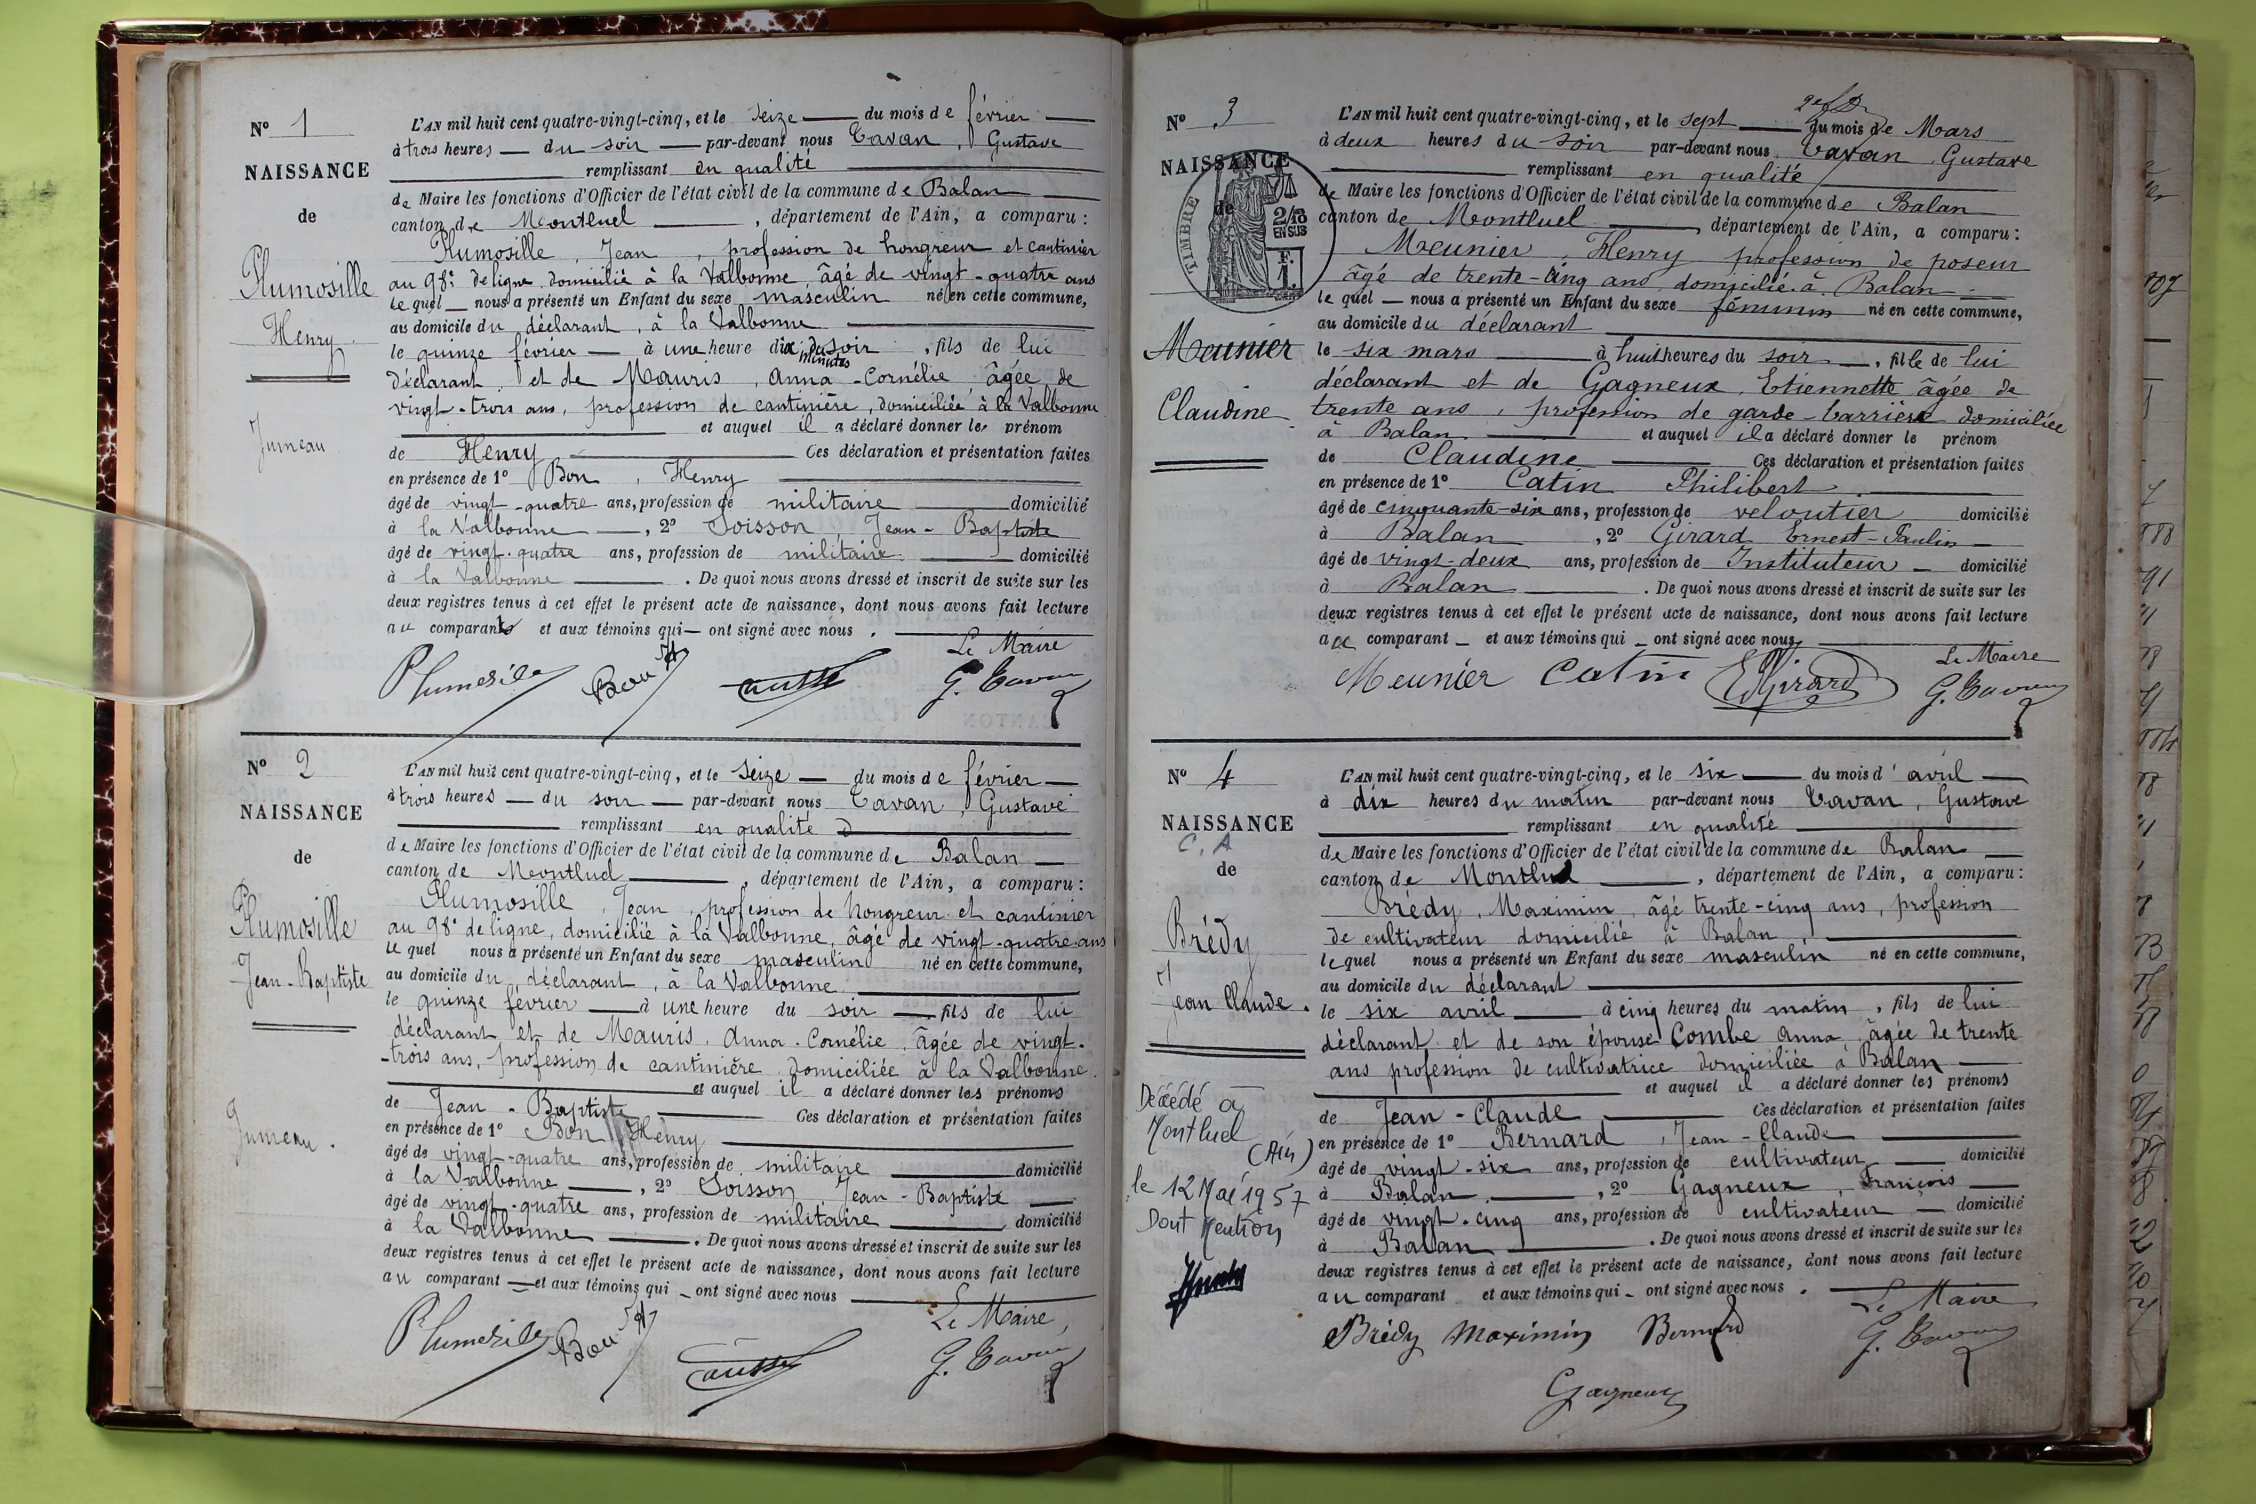 N° 1
NAISSANCE
de
Plumosille
Henry
Jumeau
L'AN mil huit cent quatre-vingt-cinq, et le seize du mois de février
à trois heures du soir par-devant nous Tavan, Gustave
remplissant en qualité
de Maire les fonctions d'Officier de l'état civil de la commune de Balan
canton de Montluel, département de l'Ain, a comparu:
Plumosille, Jean, profession de hongreur et cantinier
au 98e de ligne domicilié à la Valbonne, âgé de vingt-quatre ans
lequel nous a présenté un Enfant du sexe masculin né en cette commune,
au domicile du déclarant, à la Valbonne
le quinze février à une heure dix minutes du soir, fils de lui
déclarant et de Mauris, Anna-Cornélie, âgée de
vingt-trois ans, profession de cantinière, domiciliée à la Valbonne
et auquel il a déclaré donner les prénom
de Henry Ces déclaration et présentation faites
en présence de 1° Bon, Henry
âgé de vingt-quatre ans, profession de militaire domicilié
à la Valbonne, 2° Soisson Jean-Baptiste
âgé de vingt-quatre ans, profession de militaire domicilié
à la Valbonne. De quoi nous avons dressé et inscrit de suite sur les
deux registres tenus à cet effet le présent acte de naissance, dont nous avons fait lecture
au comparant et aux témoins qui ont signé avec nous.
Le Maire
Plumesile Bon H G. Tavan
N° 2
NAISSANCE
de
Plumosille
Jean-Baptiste
Jumeau.
L'AN mil huit cent quatre-vingt-cinq, et le seize du mois de février
à trois heures du soir par-devant nous Tavan, Gustave
remplissant en qualité
de Maire les fonctions d'Officier de l'état civil de la commune de Balan
canton de Montluel, département de l'Ain, a comparu:
Plumosille, Jean, profession de hongreur et cantinier
au 98e de ligne, domicilié à la Valbonne, âgé de vingt-quatre ans
lequel nous a présenté un Enfant du sexe masculin né en cette commune,
au domicile du déclarant, à la Valbonne
le quinze février à une heure du soir fils de lui
déclarant et de Mauris, Anna-Cornélie, âgée de vingt-
-trois ans, profession de cantinière domiciliée à la Valbonne.
et auquel il a déclaré donner les prénoms
de Jean-Baptiste Ces déclaration et présentation faites
en présence de 1° Bon Henry
âgé de vingt-quatre ans, profession de militaire domicilié
à la Valbonne, 2° Soisson Jean-Baptiste
âgé de vingt-quatre ans, profession de militaire domicilié
à la Valbonne. De quoi nous avons dressé et inscrit de suite sur les
deux registres tenus à cet effet le présent acte de naissance, dont nous avons fait lecture
au comparant et aux témoins qui ont signé avec nous
Le Maire,
Plumesile Bon H G. Tavan
N° 3
NAISSANCE
de
TIMBRE
2/10
EN SUS
F.
1.
Meunier
Claudine
L'AN mil huit cent quatre-vingt-cinq, et le sept du mois de Mars
à deux heures du soir par-devant nous Tavan Gustave
remplissant en qualité
de Maire les fonctions d'Officier de l'état civil de la commune de Balan
canton de Montluel, département de l'Ain, a comparu:
Meunier, Henry profession de poseur
âgé de trente-cinq ans domicilié à Balan
lequel nous a présenté un Enfant du sexe féminin né en cette commune,
au domicile du déclarant
le six mars à huit heures du soir, fille de lui
déclarant et de Gagneux, Etiennette âgée de
trente ans, profession de garde-barrière domiciliée
à Balan et auquel il a déclaré donner le prénom
de Claudine Ces déclaration et présentation faites
en présence de 1° Catin Philibert
âgé de cinquante-six ans, profession de veloutier domicilié
à Balan, 2° Girard Ernest-Paulin
âgé de vingt-deux ans, profession de Instituteur domicilié
à Balan. De quoi nous avons dressé et inscrit de suite sur les
deux registres tenus à cet effet le présent acte de naissance, dont nous avons fait lecture
au comparant et aux témoins qui ont signé avec nous
Le Maire
Meunier Catin EGirard G. Tavan
N° 4
NAISSANCE
C. A
de
Brédy
Jean Claude.
Décédé à
Montluel
(Ain)
le 12 Mai 1957
Dont Mention
L'AN mil huit cent quatre-vingt-cinq, et le six du mois d'avril
à dix heures du matin par-devant nous Tavan, Gustave
remplissant en qualité
de Maire les fonctions d'Officier de l'état civil de la commune de Balan
canton de Montluel, département de l'Ain, a comparu:
Brédy, Maximin, âgé trente-cinq ans, profession
de cultivateur domicilié à Balan,
lequel nous a présenté un Enfant du sexe masculin né en cette commune,
au domicile du déclarant
le six avril à cinq heures du matin, fils de lui
déclarant et de son épouse Combe Anna âgée de trente
ans profession de cultivatrice domiciliée à Balan
et auquel il a déclaré donner les prénoms
de Jean-Claude Ces déclaration et présentation faites
en présence de 1° Bernard, Jean-Claude
âgé de vingt-six ans, profession de cultivateur domicilié
à Balan, 2° Gagneux, François
âgé de vingt-cinq ans, profession de cultivateur domicilié
à Balan. De quoi nous avons dressé et inscrit de suite sur les
deux registres tenus à cet effet le présent acte de naissance, dont nous avons fait lecture
au comparant et aux témoins qui ont signé avec nous.
Le Maire
Brédy Maximin Bernard G. Tavan
Gagneux